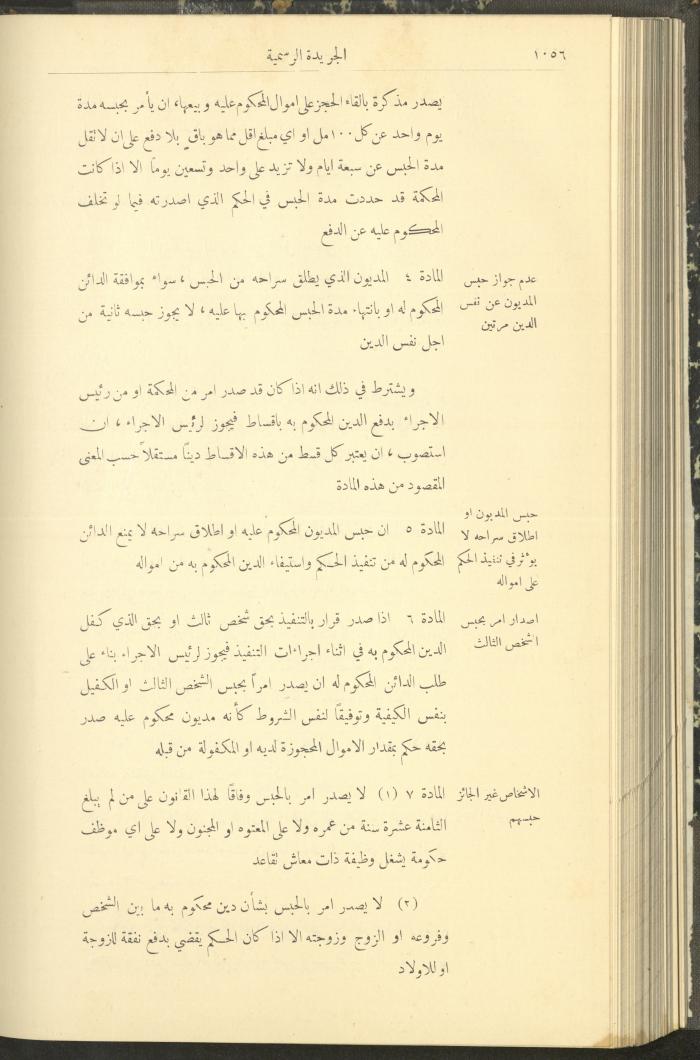 ١٠٥٦
الجريدة الرسمية
يصدر مذكرة بالقاء الحجز على اموال المحكوم عليه وبيعها، ان يأمر بحبسه مدة
يوم واحد عن كل ١٠٠ مل او اي مبلغ اقل مما هو باقٍ بلا دفع على ان لا تقل
مدة الحبس عن سبعة ايام ولا تزيد على واحد وتسعين يومًا الا اذا كانت
المحكمة قد حددت مدة الحبس في الحكم الذي اصدرته فيما لو تخلف
المحكوم عليه عن الدفع
عدم جواز حبس
المديون عن نفس
الدين مرتين
المادة ٤ المديون الذي يطلق سراحه من الحبس، سواء بموافقة الدائن
المحكوم له او بانتهاء مدة الحبس المحكوم بها عليه، لا يجوز حبسه ثانية من
اجل نفس الدين
ويشترط في ذلك انه اذا كان قد صدر امر من المحكمة او من رئيس
الاجراء بدفع الدين المحكوم به باقساط فيجوز لرئيس الاجراء، ان
استصوب، ان يعتبر كل قسط من هذه الاقساط دينًا مستقلاً حسب المعنى
المقصود من هذه المادة
حبس المديون او
اطلاق سراحه لا
يوٴثر في تنفيذ الحكم
على امواله
المادة ٥ ان حبس المديون المحكوم عليه او اطلاق سراحه لا يمنع الدائن
المحكوم له من تنفيذ الحكم واستيفاء الدين المحكوم به من امواله
اصدار امر بحبس
الشخص الثالث
المادة ٦ اذا صدر قرار بالتنفيذ بحق شخص ثالث او بحق الذي كفل
الدين المحكوم به في اثناء اجراءات التنفيذ فيجوز لرئيس الاجراء بناء على
طلب الدائن المحكوم له ان يصدر امراً بحبس الشخص الثالث او الكفيل
بنفس الكيفية وتوفيقًا لنفس الشروط كأنه مديون محكوم عليه صدر
بحقه حكم بمقدار الاموال المحجوزة لديه او المكفولة من قبله
الاشخاص غير الجائز
حبسهم
المادة ٧ (١) لا يصدر امر بالحبس وفاقًا لهذا القانون على من لم يبلغ
الثامنة عشرة سنة من عمره ولا على المعتوه او المجنون ولا على اي موظف
حكومة يشغل وظيفة ذات معاش تقاعد
(٢) لا يصدر امر بالحبس بشأن دين محكوم به ما بين الشخص
وفروعه او الزوج وزوجته الا اذا كان الحكم يقضي بدفع نفقة للزوجة
او للاولاد